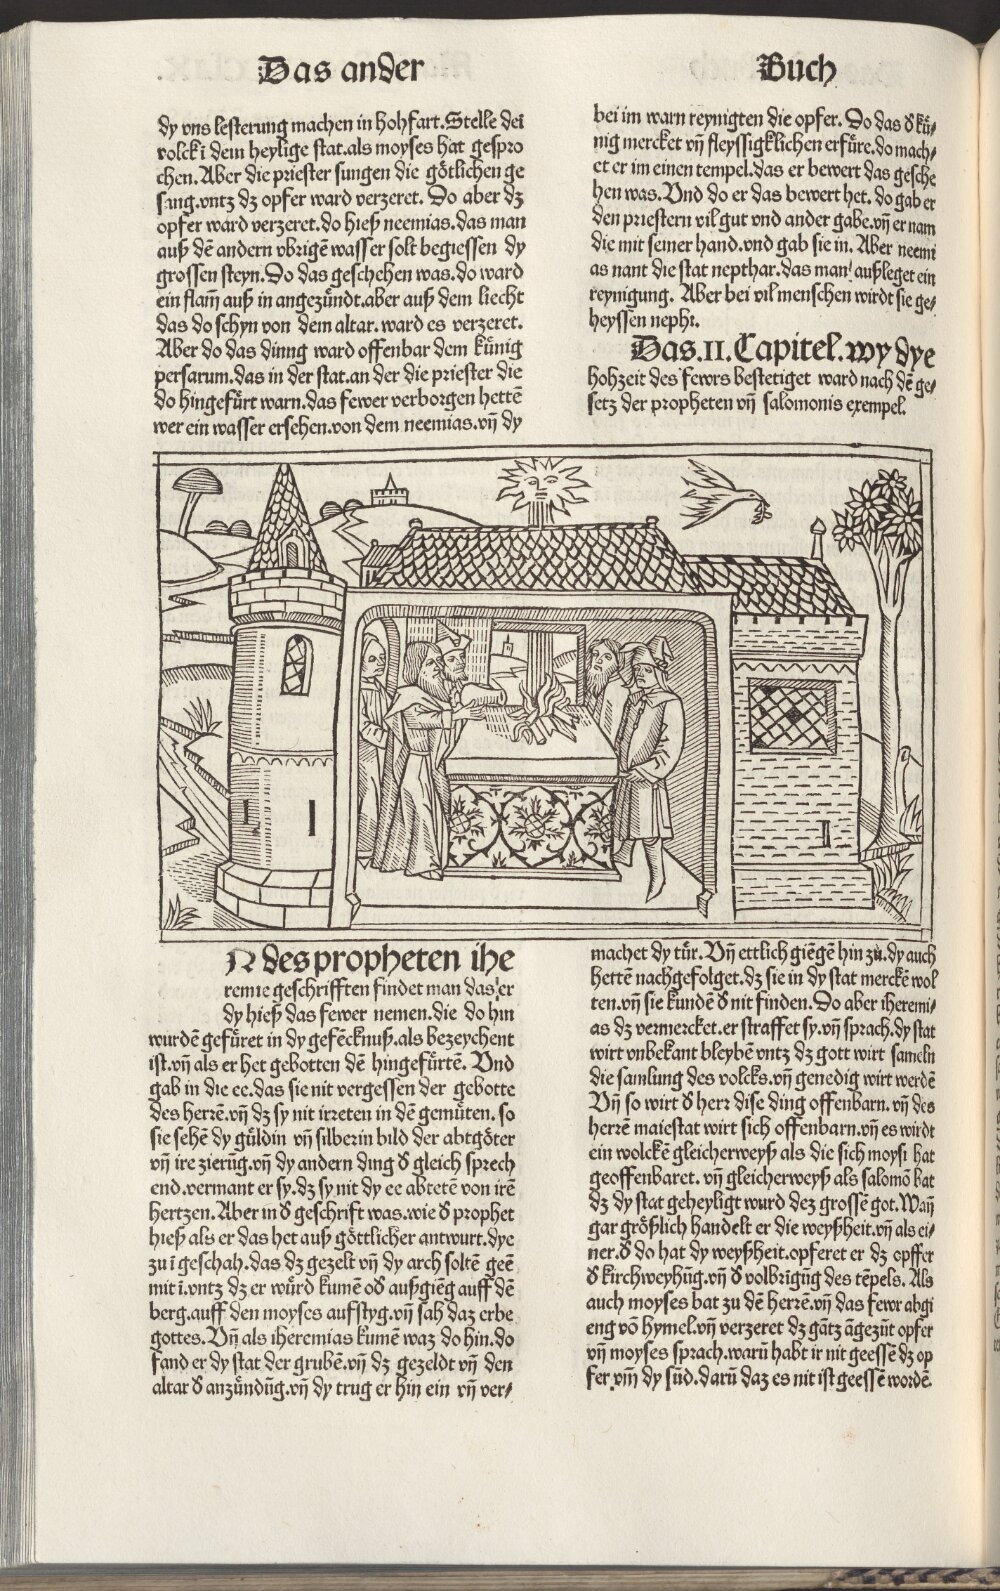 Das ander
Buch
dy vns lesterung machen in hohfart. Stelle dei
volck ĩ dem heylige stat. als moyses hat gespro
chen. Aber die priester sungen die götlichen ge
sang. vntz dz opfer ward verzeret. Do aber dz
opfer ward verzeret. do hieß neemias. das man
auß dē andern vbrigē wasser solt begiessen dy
grossen steyn. Do das geschehen was. do ward
ein flam̄ auß in angezündt. aber auß dem liecht
das do schyn von dem altar. ward es verzeret.
Aber do das dinng ward offenbar dem künig
persarum. das in der stat. an der die priester die
do hingefürt warn. das fewer verborgen hettē
wer ein wasser ersehen. von dem neemias. vn̄ dy
bei im warn reynigten die opfer. Do das d̕ kü⸗
nig mercket vn̄ fleyssigklichen erfüre. do mach⸗
et er im einen tempel. das er bewert das gesche
hen was. Vnd do er das bewert het. do gab er
den priestern vil gut vnd ander gabe. vn̄ er nam
die mit seiner hand. vnd gab sie in. Aber neemi
as nant die stat nepthar. das man außleget ein
reynigung. Aber bei vil menschen wirdt sie ge⸗
heyssen nephi.
Das .II. Capitel. wy dye
hohzeit des fewrs bestetiget ward nach dē ge⸗
setz der propheten vn̄ salomonis exempel.
N des propheten ihe
remie geschrifften findet man das er
dy hieß das fewer nemen. die do hin
wurdē gefüret in dy gefēcknuß. als bezeychent
ist. vn̄ als er het gebotten dē hingefürtē. Vnd
gab in die ee. das sie nit vergessen der gebotte
des herrē. vn̄ dz sy nit irreten in dē gemüten. so
sie sehē dy güldin vn̄ silberin bild der abtgöter
vn̄ ire zierūg. vn̄ dy andern ding d̕ gleich sprech
end. vermant er sy. dz sy nit dy ee abtetē von irē
hertzen. Aber in d̕ geschrift was. wie d̕ prophet
hieß als er das het auß göttlicher antwurt. dye
zu ĩ geschah. das dz gezelt vn̄ dy arch soltē geē
mit ĩ. vntz dz er würd kumē od̕ außgiēg auff dē
berg. auff den moyses aufstyg. vn̄ sah daz erbe
gottes. Vn̄ als iheremias kumē waz do hin. do
fand er dy stat der grubē. vn̄ dz gezeldt vn̄ den
altar d̕ anzündūg. vn̄ dy trug er hin ein vn̄ ver⸗
machet dy tür. Vn̄ ettlich giēgē hin zů. dy auch
hettē nachgefolget. dz sie in dy stat merckē wol
ten. vn̄ sie kundē d̕ nit finden. Do aber iheremi⸗
as dz vermercket. er straffet sy. vn̄ sprach. dy stat
wirt vnbekant bleybē vntz dz gott wirt sameln
die samlung des volcks. vn̄ genedig wirt werdē
Vn̄ so wirt d̕ herr dise ding offenbarn. vn̄ des
herrē maiestat wirt sich offenbarn. vn̄ es wirdt
ein wolckē gleicherweyß als die sich moysi hat
geoffenbaret. vn̄ gleicherweyß als salomō bat
dz dy stat geheyligt wurd dez grossē got. Wan̄
gar größlich handelt er die weyßheit. vn̄ als ei⸗
ner. d̕ do hat dy weyßheit. opferet er dz opffer
d̕ kirchweyhūg. vn̄ d̕ volbrīgūg des tēpels. Als
auch moyses bat zu dē herrē. vn̄ das fewr abgi
eng vō hymel. vn̄ verzeret dz gātz āgezūt opfer
vn̄ moyses sprach. warū habt ir nit geessē dz op
fer vm̄ dy sūd. darū daz es nit ist geessē wordē.